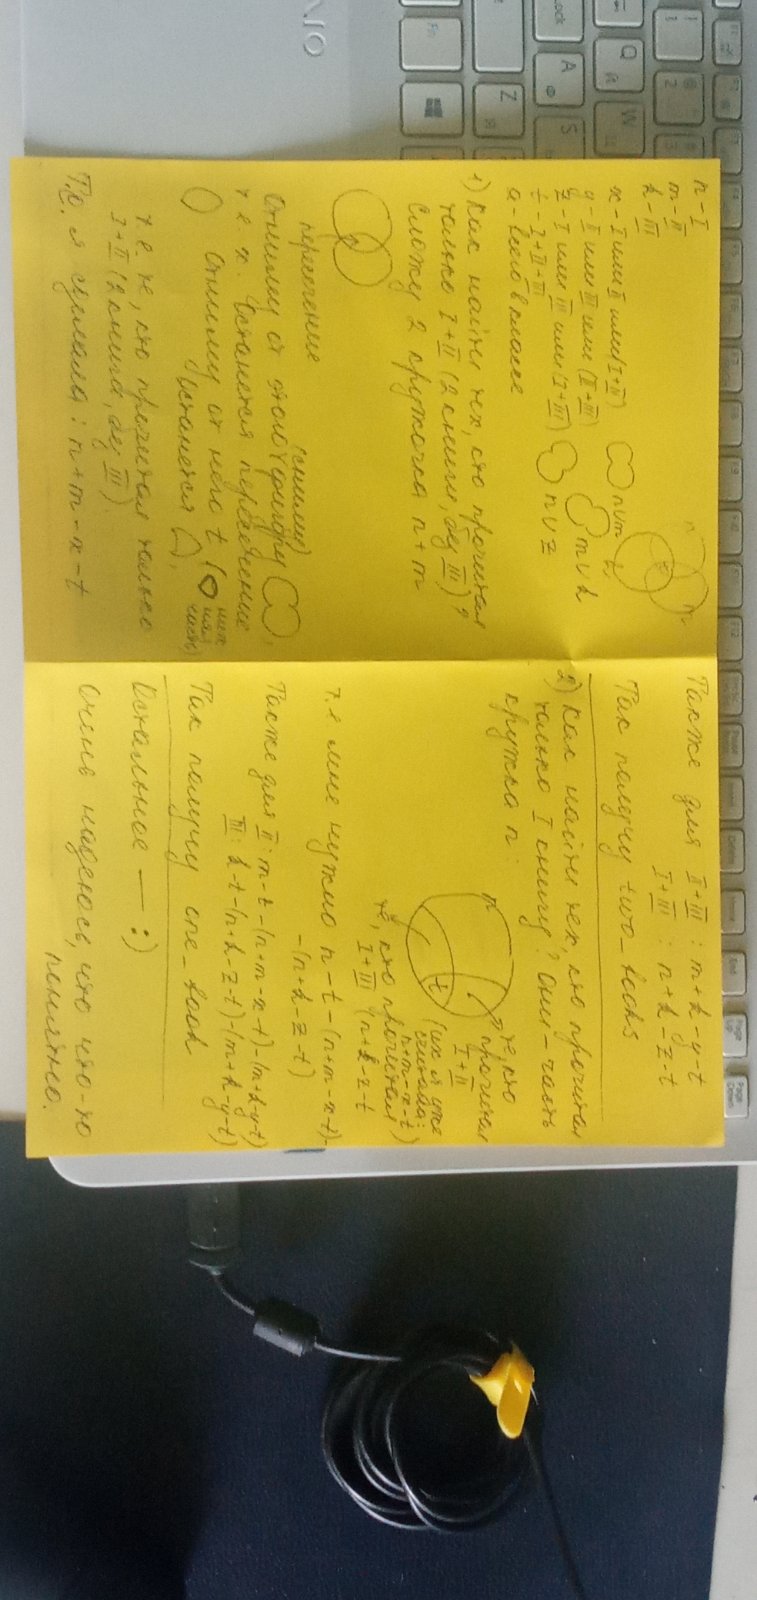 n - I
m - II
k - III
x - I или II или (I+II)
n∪m
y - II или III или (II+III)
m∪k
z - I или III или (I+III)
n∪z
t - I+II+III
a - всего в классе
n
m
k
1) Как найти тех, кто прочитал
только I+II (2 книги, без III)?
Сложу 2 кружочка n+m
пересечение
(сниму)
Отниму от этого фигуру
т.е. x. Останется пересечение
Отниму от него t (
ниж
няя
часть)
Останется
т.е. те, кто прочитал только
I+II (2 книги, без III).
Т.о. я сделала: n+m-x-t
Также для II+III : m+k-y-t
I+III : n+k-z-t
Так получу two_books
2) Как найти тех, кто прочитал
только I книгу? Они - часть
кружка n:
n
t
те, кто
прочитал
I+II
(их я уже
считала:
n+m-x-t)
те, кто прочитал
I+III (n+k-z-t
т.е. мне нужно n-t-(n+m-x-t)-
-(n+k-z-t)
Также для II: m-t-(n+m-x-t)-(m+k-y-t)
III: k-t-(n+k-z-t)-(m+k-y-t)
Так получу one_book
Остальное — :)
Очень надеюсь, что что-то
понятно.
Q
W
A
S
Z
Lock
Fn
Delete
Home
End
Page
Up
Page
Down
AIO